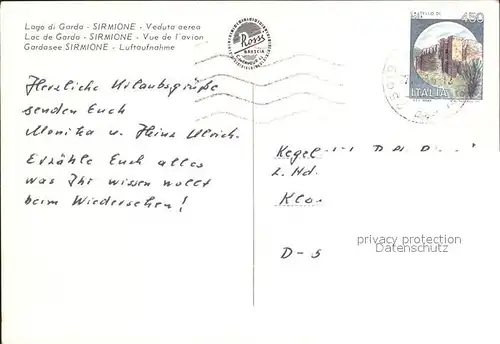 Lago di Garda - SIRMIONE - Veduta aerea
Lac de Garda - SIRMIONE - Vue de l'avion
Gardasee SIRMIONE - Luftaufnahme
Rossi
BRESCIA
450
ITALIA
Herzliche Urlaubsgrüße
senden Euch
Monika u. Heinz Ulrich.
Erzähle Euch alles
was Ihr wissen wollt
beim Wiedersehen!
Kegel
z. Hd.
Klo
D-5
privacy protection
Datenschutz